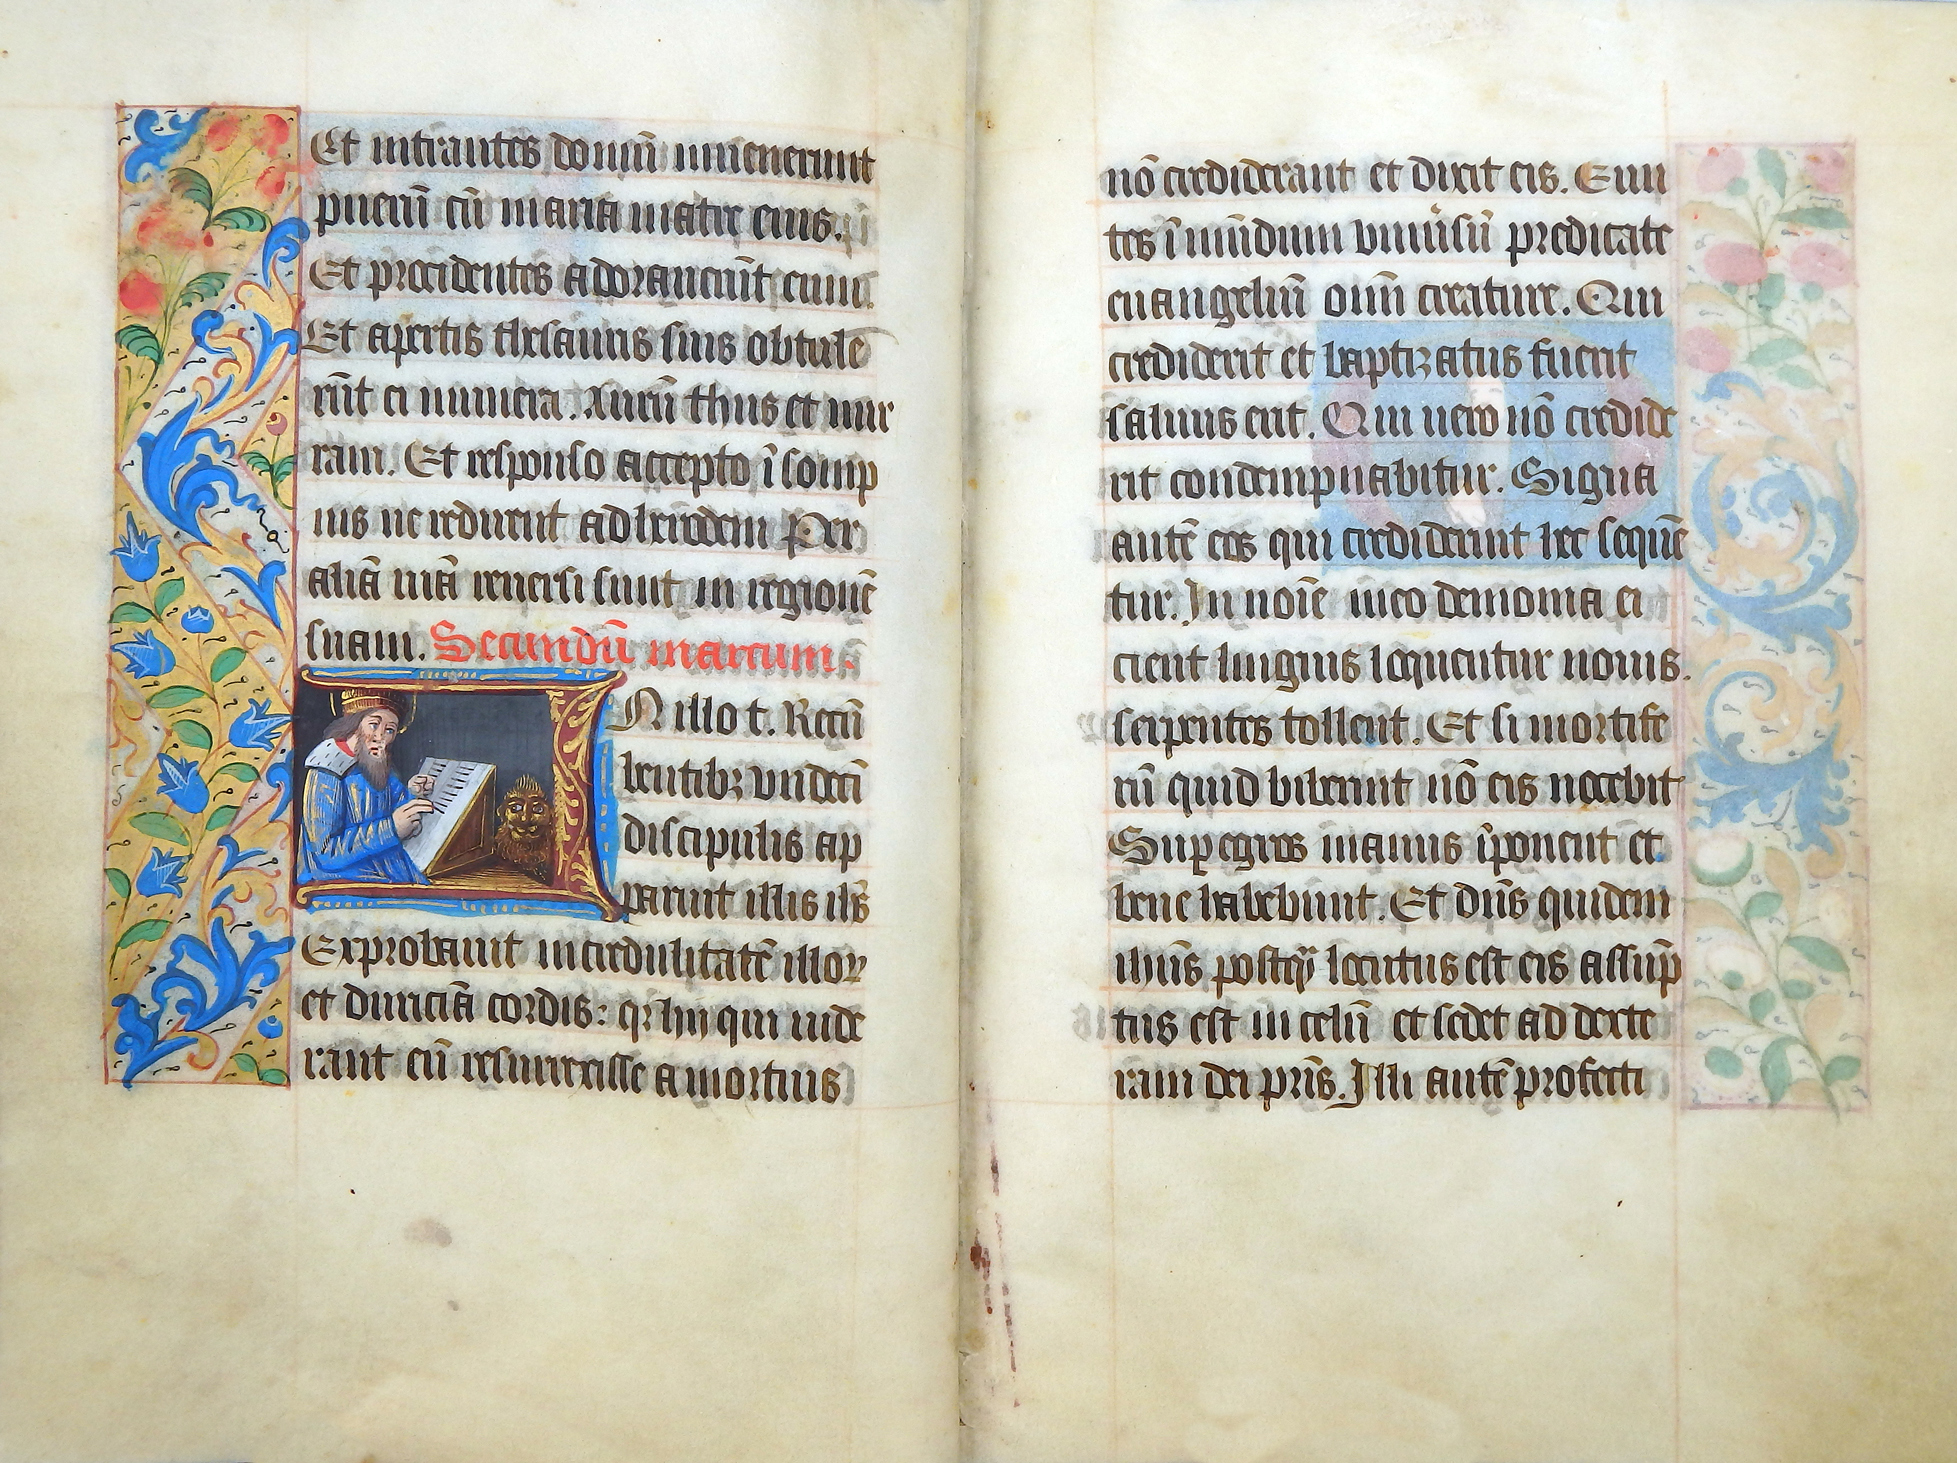 Et intrantes domū inuenerunt
puerū cū maria matre eius.
Et procidentes adorauerūt eum.
Et apertis thesauris suis obtule
rūt ei munera. Aurū thus et mir
ram. Et responso accepto ī somp
nis ne redirent ad herodem Per
aliā uiā reuersi sunt in regionē
suam. Secundū marcum.
N illo t. Recū
bentibꝫ undeci
discipulis ap
paruit illis ihs̄
Exprobauit incredulitatē illoꝝ
et duriciā cordis: qꝛ hij qui uide
rant eū resurrexisse a mortuis
nō crediderant et dixit eis. Eun
tes ī mūdum uniuersū predicate
euangeliū om̄i creature. Qui
crediderit et baptizatus fuerit
saluus erit. Qui uero nō credide
rit condempnabitur. Signa
autē eos qui crediderint hec sequē
tur. In noīe meo demonia ei
cient linguis loquentur nouis.
serpentes tollent. Et si mortife
rū quid biberint nō eis nocebit
Suꝑ egros manus īponent et
bene habebunt. Et dn̄s quidem
ihūs postꝙ̄ locutus est eis assūp
tus est in celū et sedet ad dexte
ram dei pr̄is. Illi autē profecti